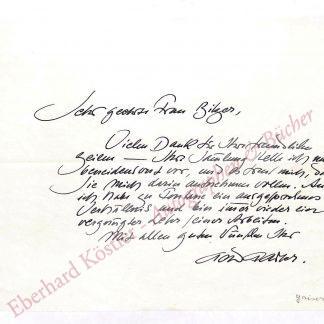 Sehr geehrte Frau Bitzer,
Vielen Dank für Ihre freundlichen
Zeilen — Ihre Sammlung stelle ich mir
beneidenswert vor, und es freut mich, daß
Sie mich darin aufnehmen wollen. Auch
ich habe zu Fontane ein
Verhältnis und bin immer wieder ein
vergnügter Leser seiner Arbeiten.
Mit allen guten Wünschen Ihr
Eberhard Köstler Bücher